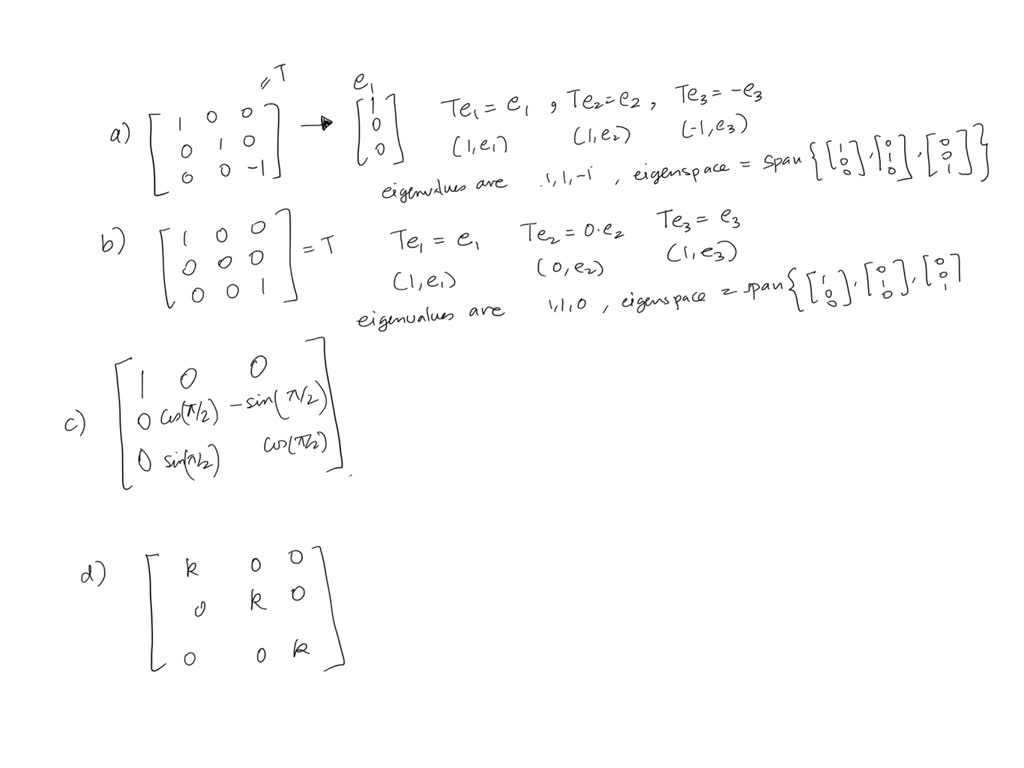 = T e₁
a) [1 0 0; 0 1 0; 0 0 -1] → [1; 0; 0] Te₁ = e₁ , Te₂ = e₂ , Te₃ = -e₃
(1, e₁) (1, e₂) (-1, e₃)
eigenvalues are 1, 1, -1 , eigenspace = span {[1; 0; 0], [0; 1; 0], [0; 0; 1]}
b) [1 0 0; 0 0 0; 0 0 1] = T Te₁ = e₁ Te₂ = 0·e₂ Te₃ = e₃
(1, e₁) (0, e₂) (1, e₃)
eigenvalues are 1, 1, 0 , eigenspace = span {[1; 0; 0], [0; 1; 0], [0; 0; 1]
c) [1 0 0; 0 cos(π/2) -sin(π/2); 0 sin(π/2) cos(π/2)]
d) [k 0 0; 0 k 0; 0 0 k]